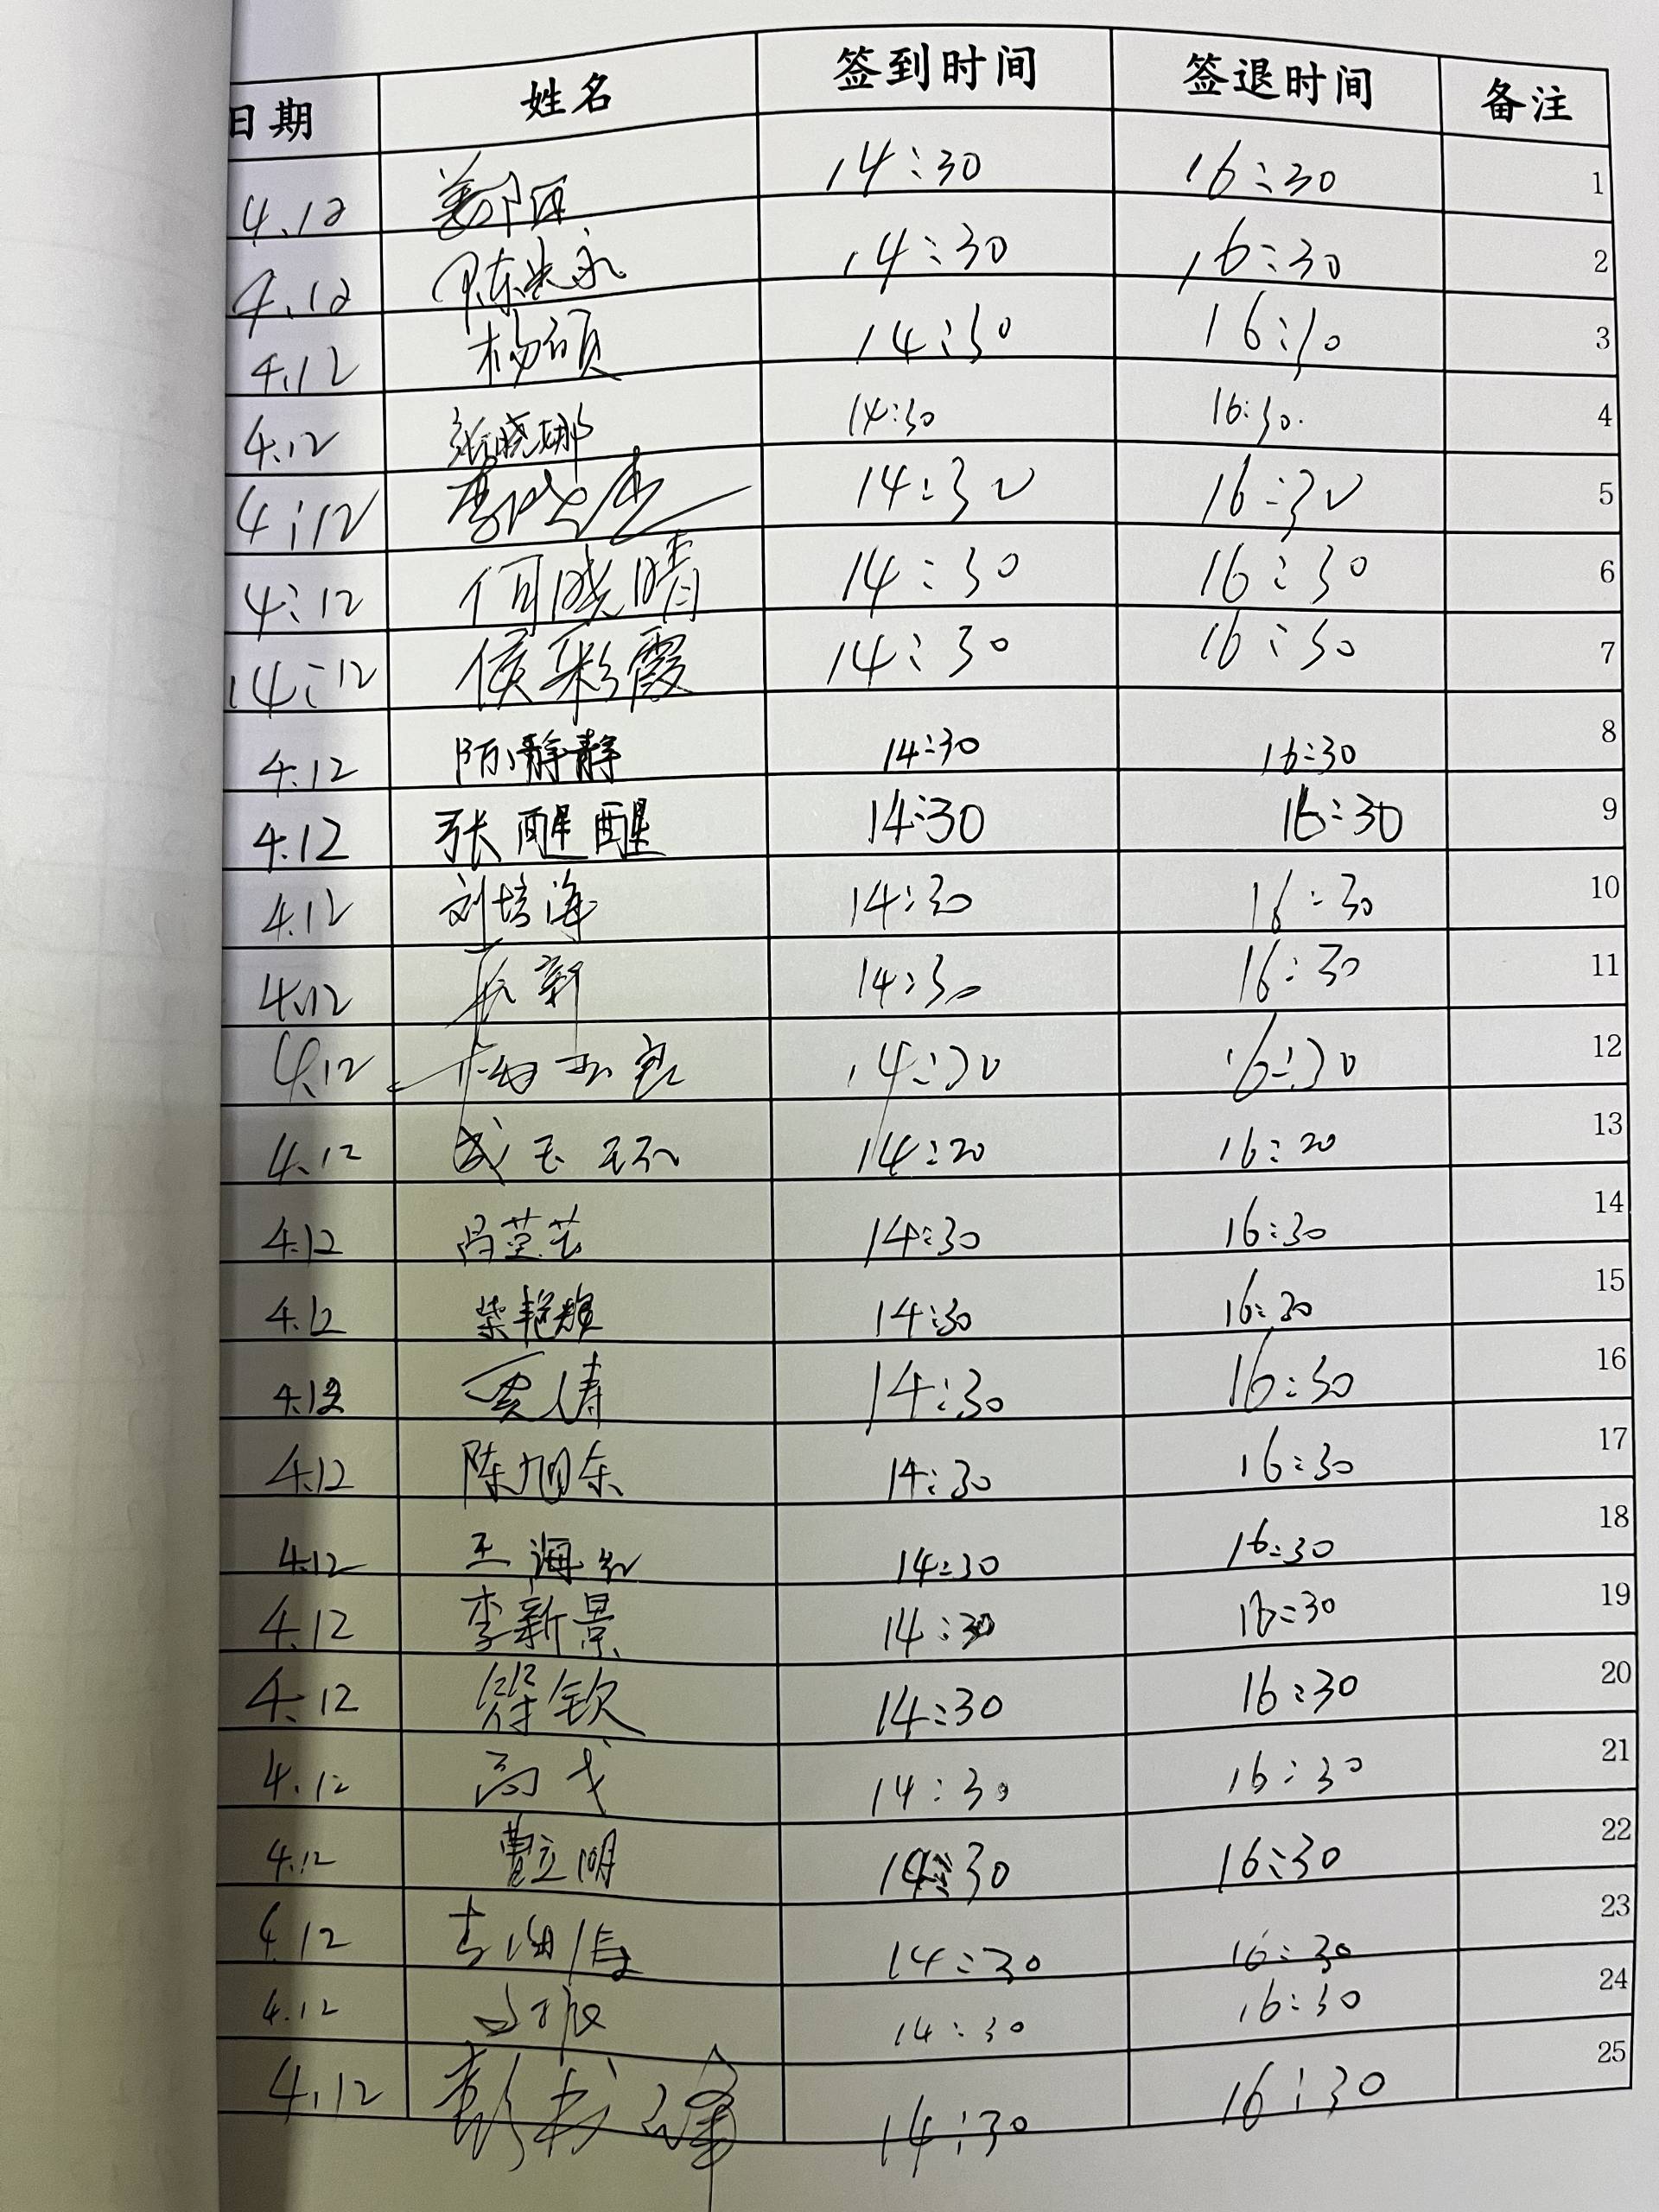 日期 姓名 签到时间 签退时间 备注
4.12 14:30 16:30 1
4.12 陈 永 14:30 16:30 2
4.12 杨硕 14:30 16:30 3
4.12 张晓娜 14:30 16:30. 4
4:12 14:30 16:30 5
4:12 何晓晴 14:30 16:30 6
14:12 侯彩霞 14:30 16:30 7
4.12 陈静静 14:30 16:30 8
4.12 张醒醒 14:30 16:30 9
4.12 刘培海 14:30 16:30 10
4.12 新 14:30 16:30 11
4.12 杨 14:30 16:30 12
4.12 成玉环 14:20 16:20 13
4.12 芸 14:30 16:30 14
4.12 柴艳 14:30 16:30 15
4.12 贾涛 14:30 16:30 16
4.12 陈旭东 14:30 16:30 17
4.12 王海红 14:30 16:30 18
4.12 李新景 14:30 16:30 19
4.12 钦 14:30 16:30 20
4.12 高 14:30 16:30 21
4.12 曹立明 14:30 16:30 22
4.12 14:30 16:30 23
4.12 14:30 16:30 24
4.12 彭 峰 14:30 16:30 25